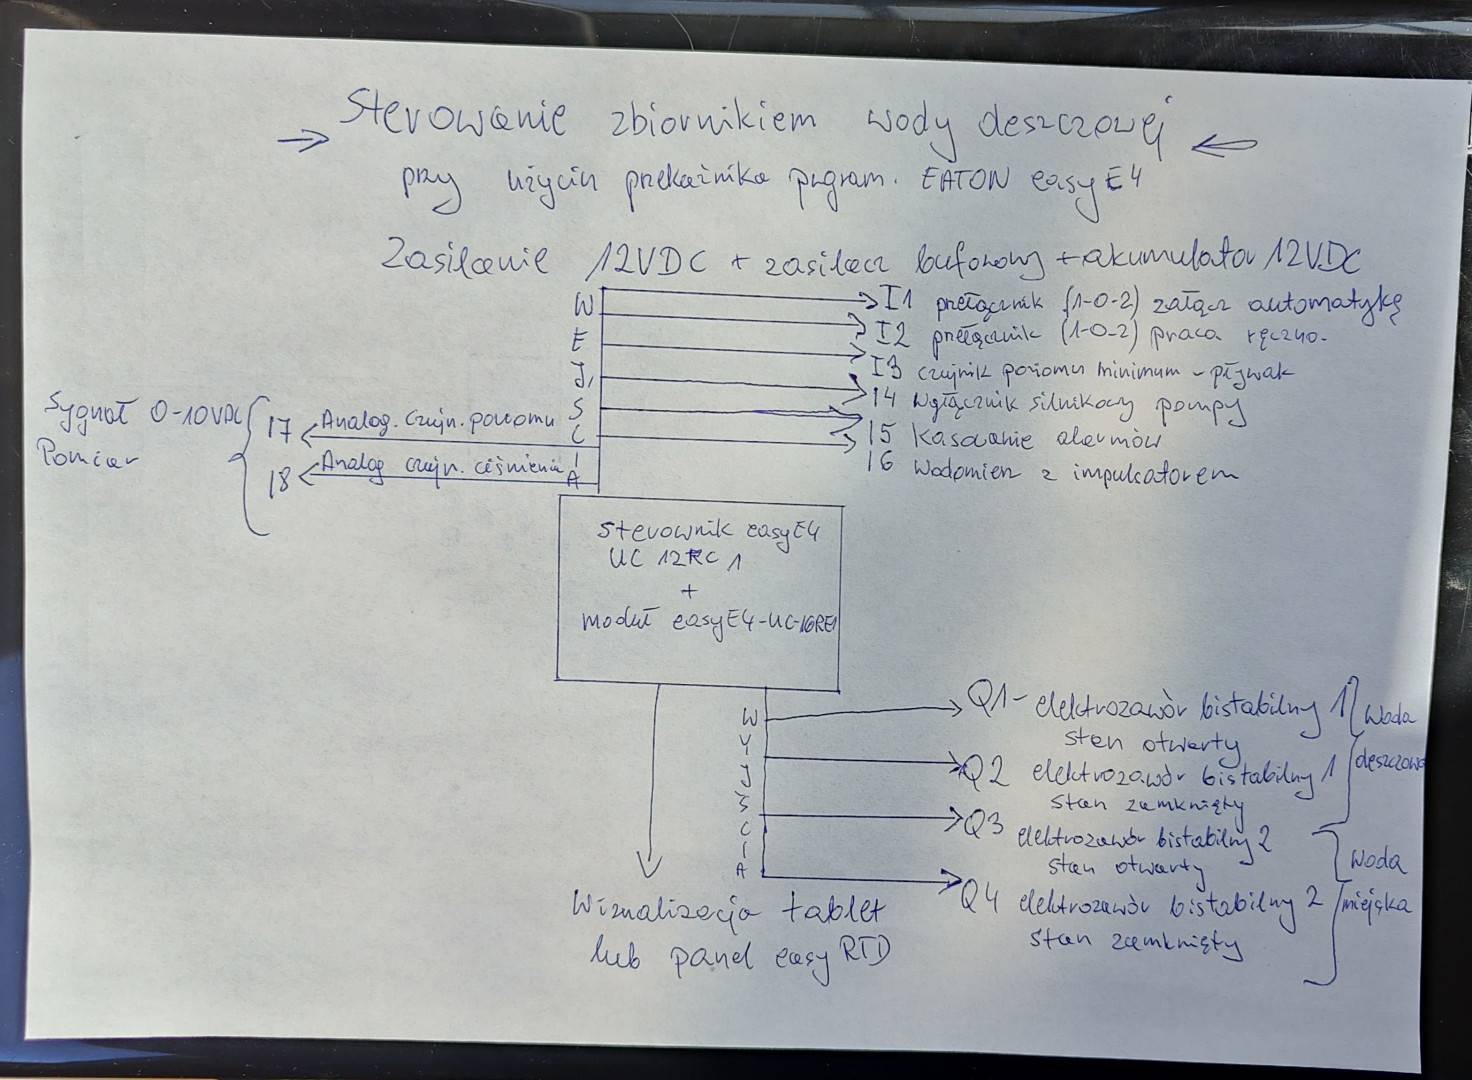 Sterowanie zbiornikiem wody deszczowej
przy użyciu przekaźnika program. EATON easy E4
Zasilanie 12VDC + zasilacz buforowy + akumulator 12VDC
WEJŚCIA
I1 przełącznik (1-0-2) załącz automatykę
I2 przełącznik (1-0-2) praca ręczna.
I3 czujnik poziomu minimum - pływak
I4 Wyłącznik silnikowy pompy
I5 Kasowanie alarmów
I6 Wodomierz z impulsatorem
Sygnał 0-10VDC
Pomiar
I7 Analog. czujn. poziomu
I8 Analog czujn. ciśnienia
sterownik easyE4
UC 12RC 1
+
moduł easyE4-UC-16RE1
WYJŚCIA
Q1 - elektrozawór bistabilny 1
stan otwarty
Q2 elektrozawór bistabilny 1
stan zamknięty
Woda
deszczowa
Q3 elektrozawór bistabilny 2
stan otwarty
Q4 elektrozawór bistabilny 2
stan zamknięty
Woda
miejska
Wizualizacja tablet
lub panel easy RTD